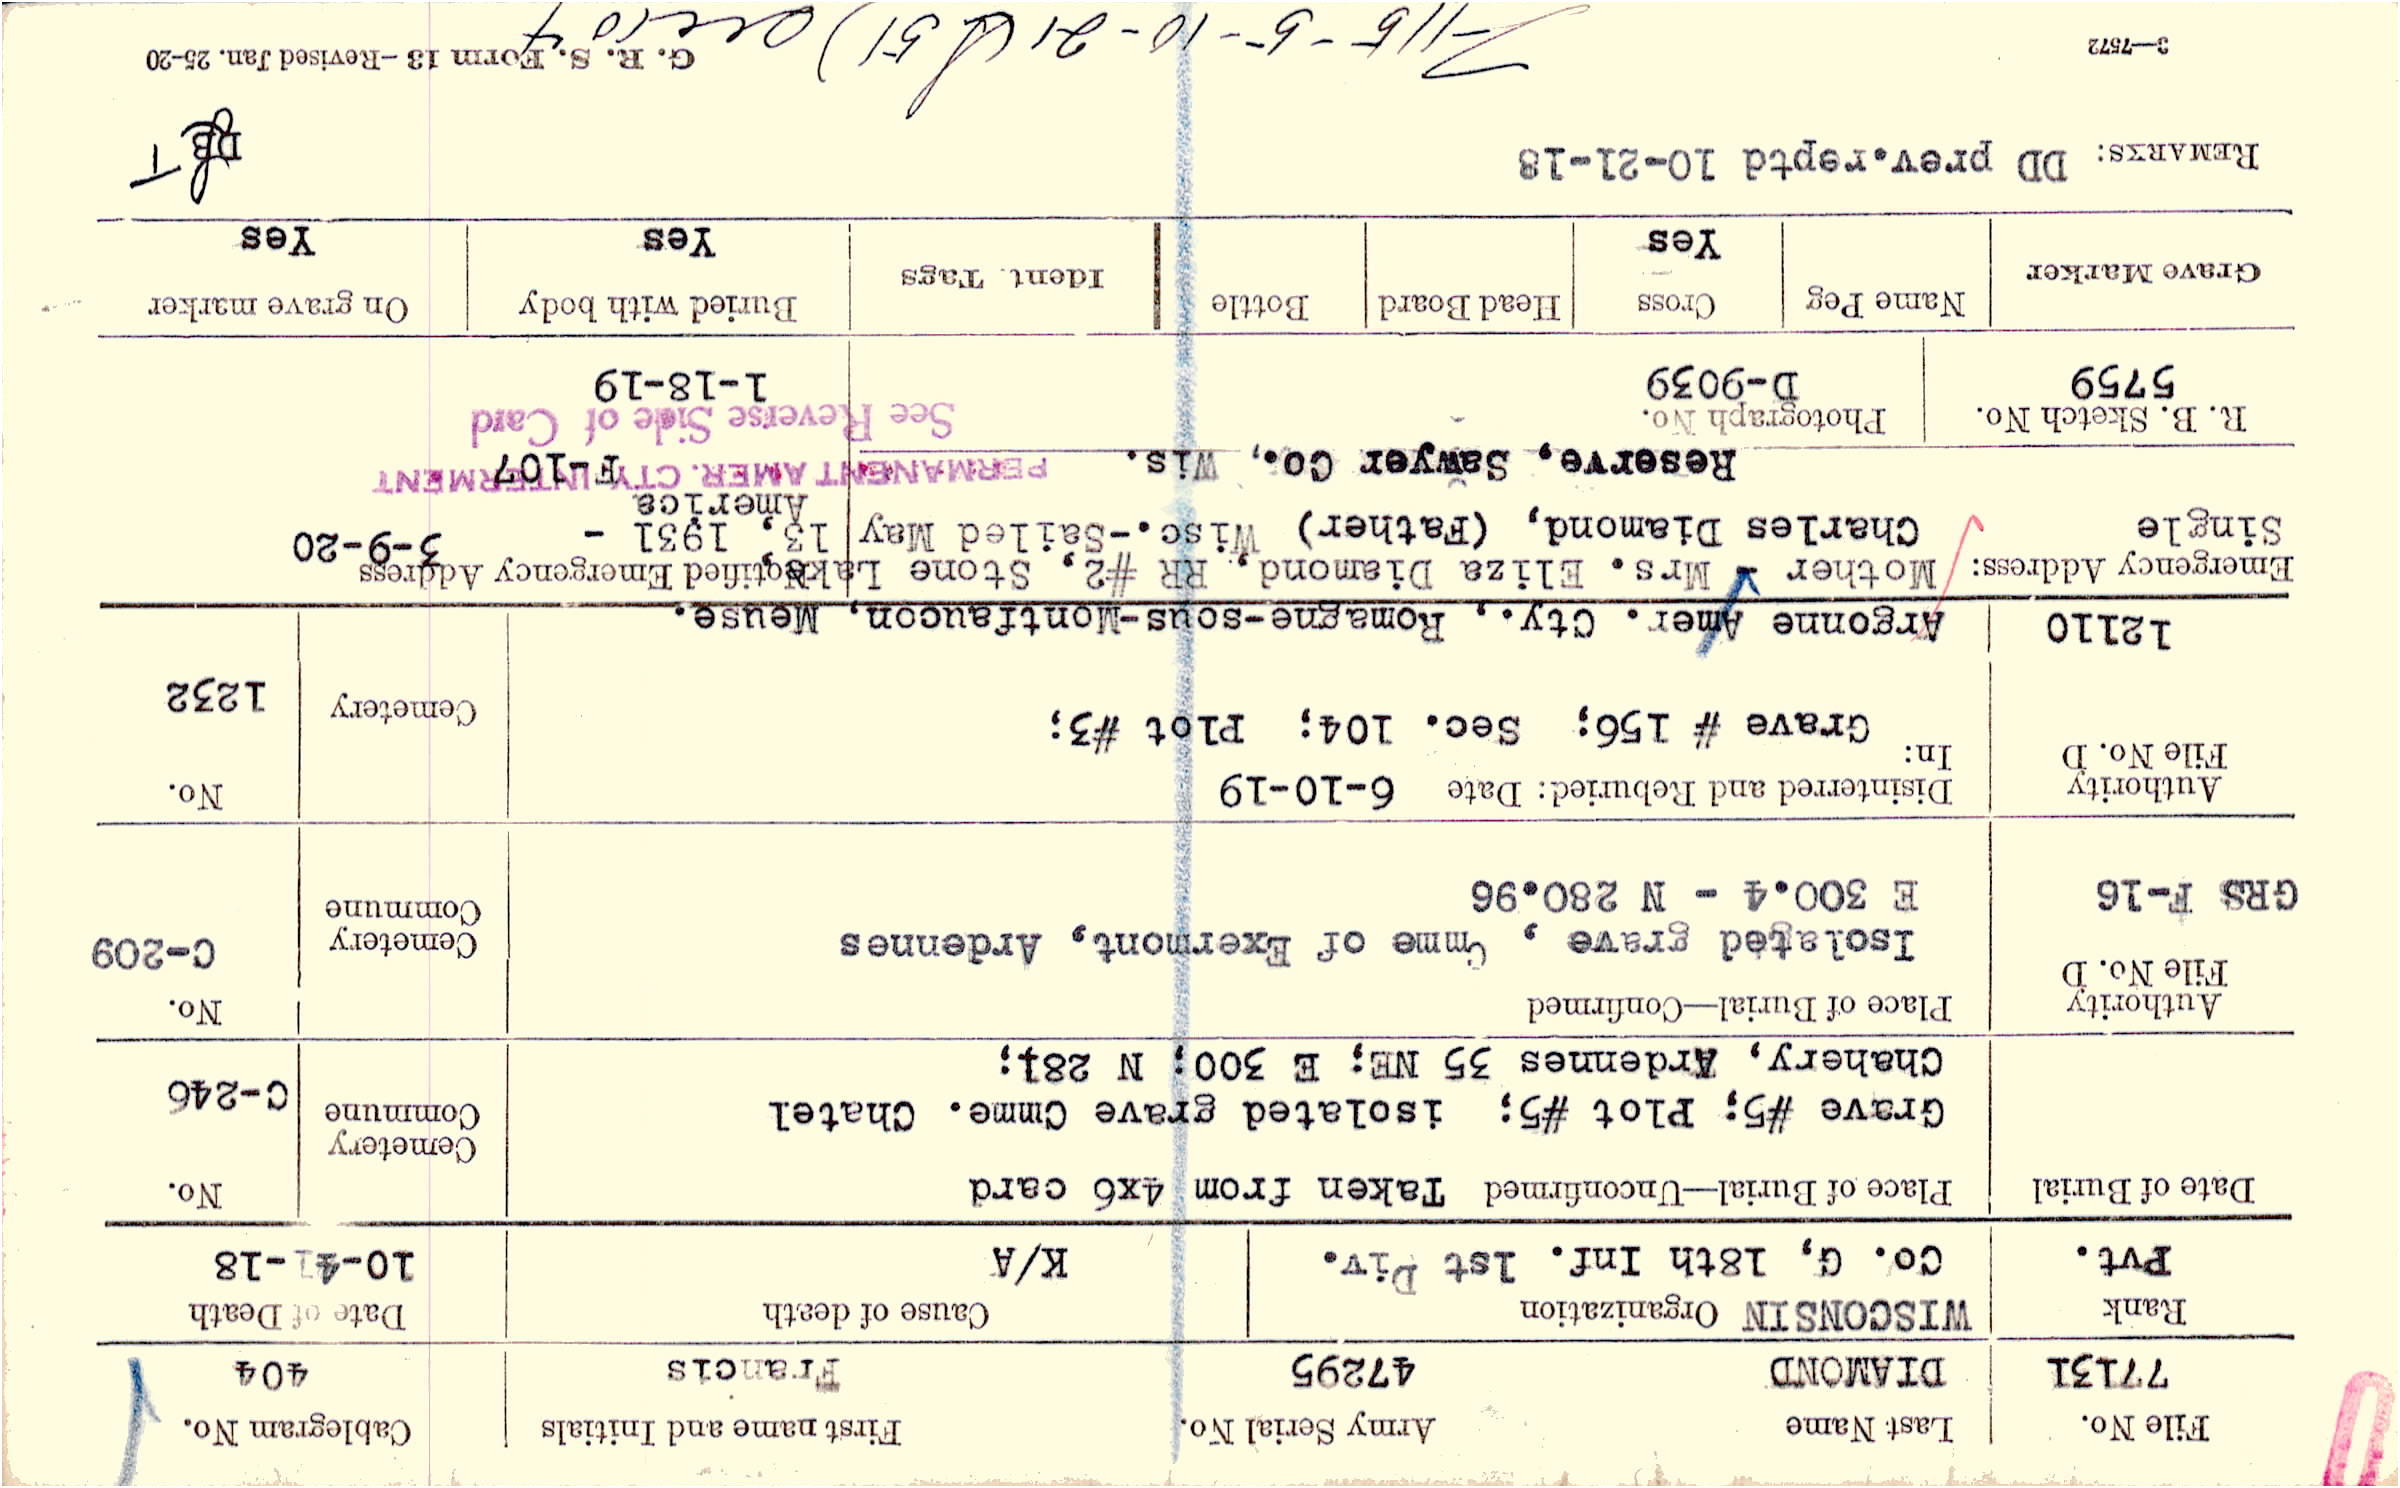 File No. Last Name Army Serial No. First name and Initials Cablegram No.
77131 DIAMOND 47295 Francis 404
Rank WISCONSIN Organization Cause of death Date of Death
Pvt. Co. G, 18th Inf. 1st Div. K/A -18
Date of Burial Place of Burial—Unconfirmed Taken from 4x6 card No.
Grave #5; Plot #5; isolated grave Cmme. Chatel Cemetery Commune C-246
Chehery, Ardennes 35 NE; E 300; N 281;
Authority File No. D Place of Burial—Confirmed No.
Isolated grave, Cmme of Exermont, Ardennes Cemetery Commune C-209
GRS F-16 E 300.4 - N 280.96
Authority File No. D Disinterred and Reburied: Date 6-10-19 No.
In: Grave # 156; Sec. 104; Plot #3; Cemetery 1232
12110 Argonne Amer. Cty., Romagne-sous-Montfaucon, Meuse.
Emergency Address: Mother - Mrs. Eliza Diamond, RR #2, Stone Lake Notified Emergency Address 3-9-20
Single Charles Diamond, (Father) Wisc.-Sailed May 13, 1931 -
America
Reserve, Sawyer Co., Wis. PERMANENT AMER. CTY. INTERMENT F-107
See Reverse Side of Card
R. B. Sketch No. Photograph No.
5759 D-9039 1-18-19
Grave Marker Name Peg Cross Head Board Bottle Ident. Tags Buried with body On grave marker
Yes Yes Yes
REMARKS: DD prev.reptd 10-21-18
3—7572 G. R. S. Form 13—Revised Jan. 25-20